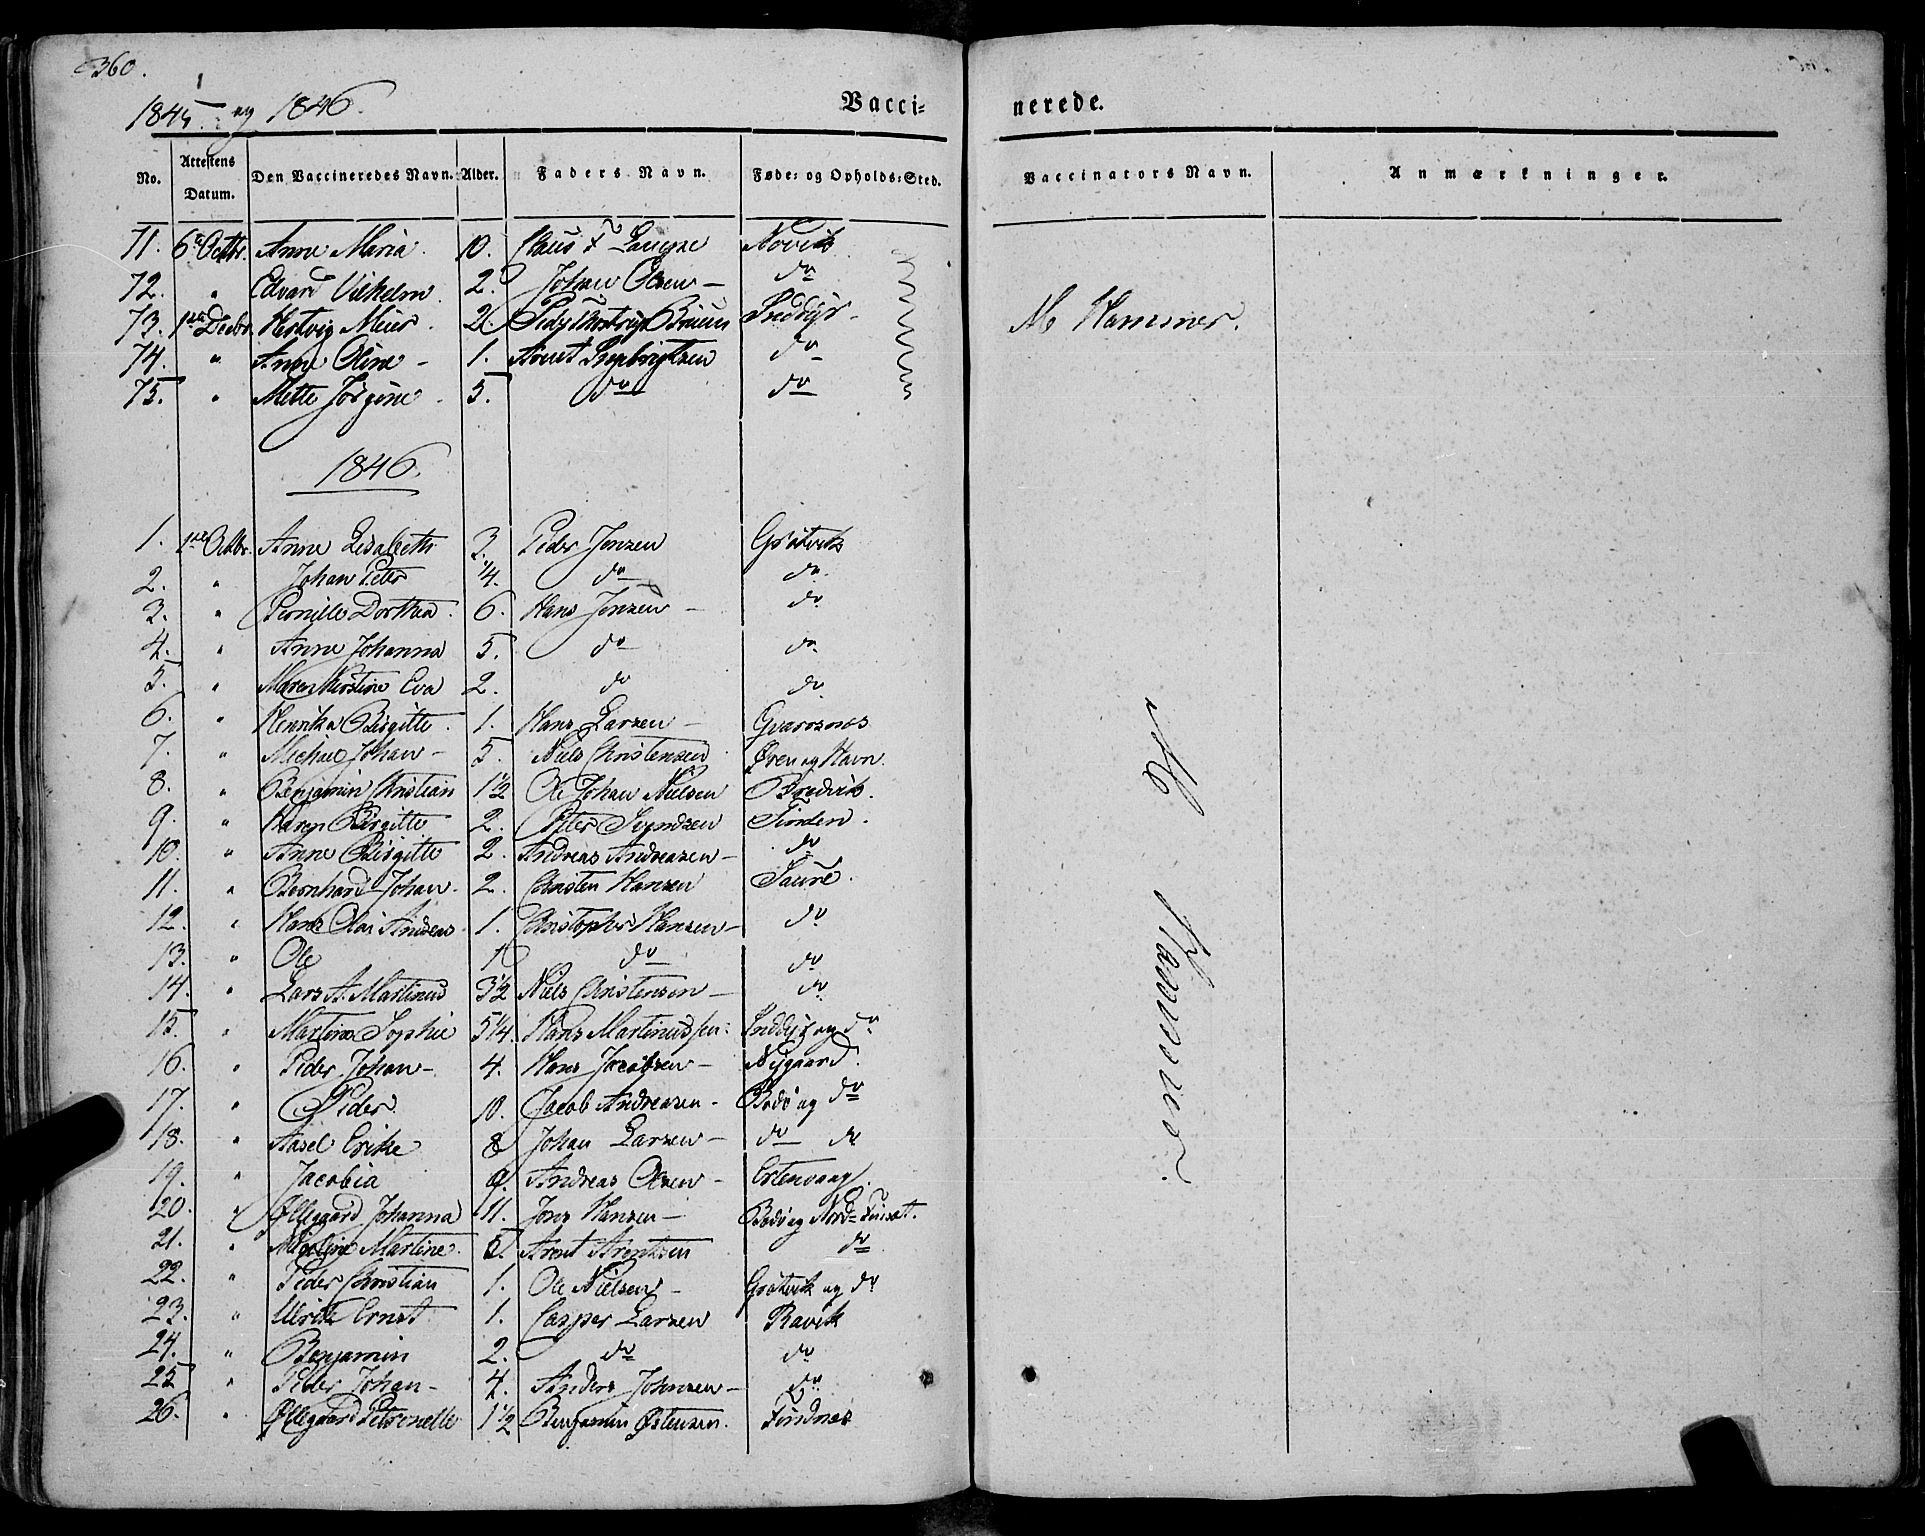 360.
1845 og 1846.
Vacci= nerede.
No. Attestens Datum. Den Vaccineredes Navn. Alder. Faders Navn. Føde= og Opholds=Sted. Vaccinators Navn. Anmærkninger.
71. 6te Octbr. Anne Maria. 10. Claus Novik
72. " Edvard Vilhelm. 2. Johan Olsen do
73. 1ste Decbr. Hertvig Meier. 2. Bruun Inddyr M Hammer.
74. " Anne Oline 1. Arent Ingebrigtsen do
75. " Mette Jørgine 5. do do
1846.
1. 1ste Octbr. Anne Elisabeth 3. Peder Jensen Gråtvik
2. " Johan Peter 1/4. do do
3. " Pernille Dorthea. 6. Hans Jensen do
4. " Anne Johanna 5. do do
5. " Maren Kirstine Eva 2. do do
6. " Henrika Birgitte. 1. Hans Larsen
7. " Michael Johan 5. Niels Christensen Øren og Havn.
8. " Benjamin Christian 1 1/2 Ole Johan Nielsen Bredvik.
9. " Karen Birgitte 2. Peter
10. " Anne Birgitte 2. Andreas Andreasen do
11. " Bernhard Johan. 2. Christen Hansen
12. " Hans Olai Andreas 1. Christopher Hansen do
13. " Ole 1 do do
14. " Lars A. Martinus 3 1/2 Niels Christensen do
15. " Martine Sophie 5 1/4. Hans Martinussen Inddyr og do
16. " Peder Johan 4. Hans Jacobsen Nygaard.
17. " Peder 10. Jacob Andreasen Bodø og do
18. " Aasel Erike 8 Johan Larsen do do
19. " Jacobia 9. Andreas Olsen Ertenvaag.
20. " Øllegaard Johanna 11. Jens Hansen Bodø og Nord
21. " Martine. 5. Arent Arentsen do
22. " Peder Christian 1. Ole Nielsen Gråtvik og do
23. " Ulrik Ernst 1. Casper Larsen Ravik
24. " Benjamin 2. do do
25 " Peder Johan 4. Anders Johnsen do
26. " Øllegaard Petronelle 1 1/2 Benjamin Østensen. Findnes
M Hammer